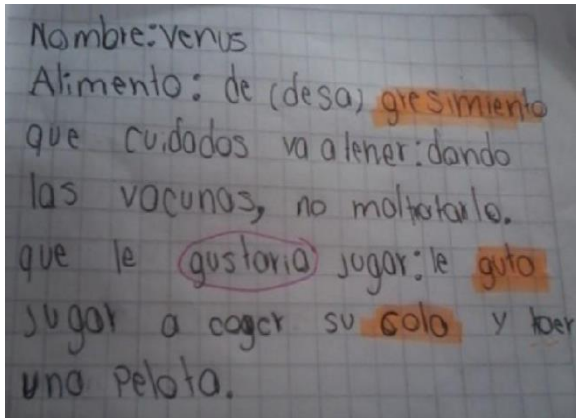 Nombre: Venus
Alimento: de (desa) gresimiento
que cuidados va a tener: dando
las vacunas, no moltratarlo.
que le gustaria jugar: le guto
jugar a coger su colo y toer
una pelota.